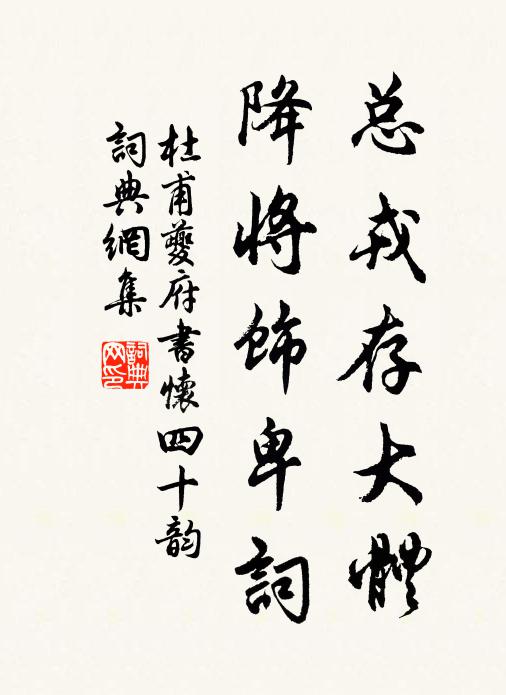 总戎存大體
降將飾卑詞
杜甫夔府書懷四十韵
詞典網集
詞典
网印